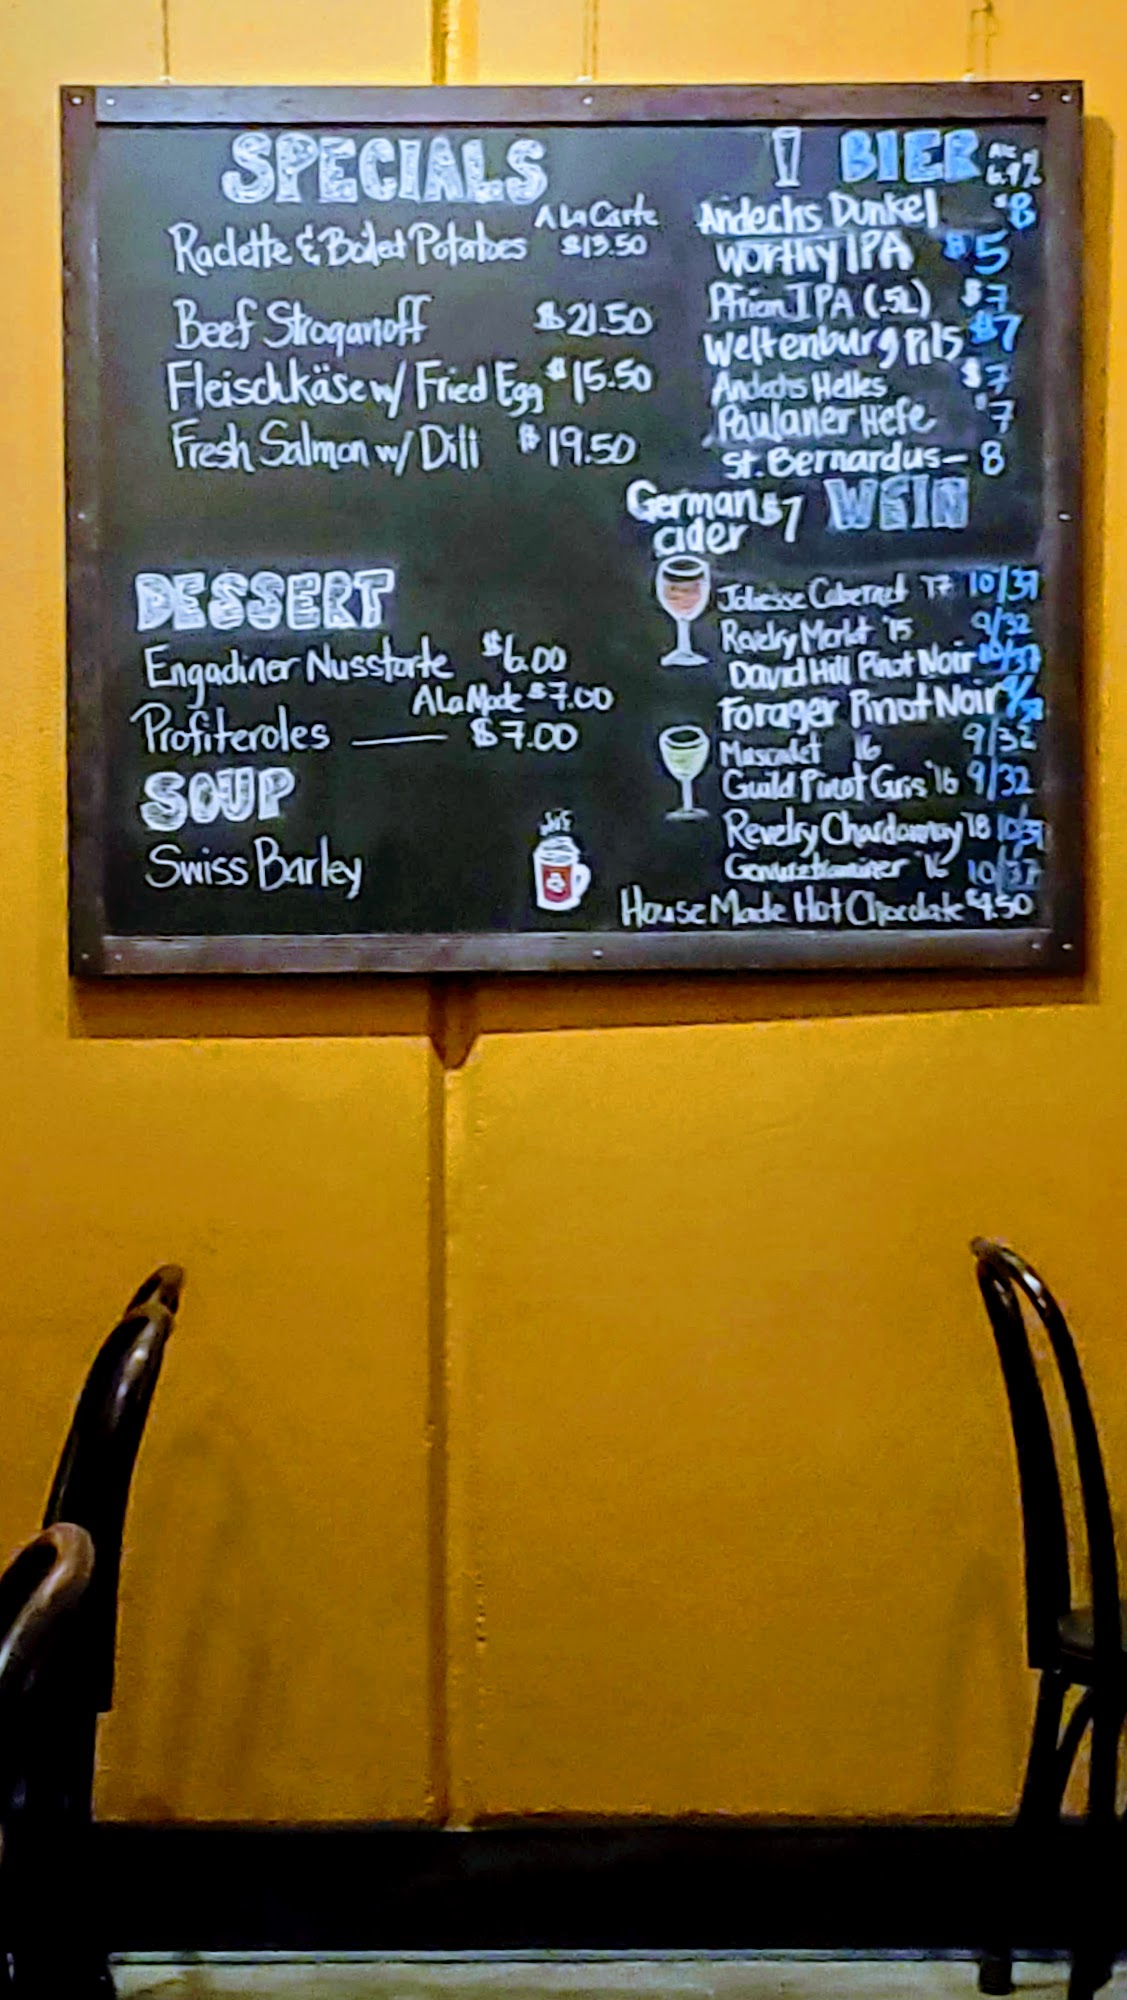 SPECIALS
A La Carte
Raclette & Boiled Potatoes $13.50
Beef Stroganoff $21.50
Fleischkäse w/ Fried Egg $15.50
Fresh Salmon w/ Dill $19.50
DESSERT
Engadiner Nusstorte $6.00
A La Mode $7.00
Profiteroles $7.00
SOUP
Swiss Barley
BIER
6.9%
Andechs Dunkel $8
Worthy IPA $5
Pfriem IPA (.5L) $7
Weltenburg Pils $7
Andechs Helles $7
Paulaner Hefe $7
St. Bernardus - 8
German cider $7
WEIN
Joliesse Cabernet '17
Revelry Merlot '15 9/32
David Hill Pinot Noir
Forager Pinot Noir
Muscadet 16 9/32
Guild Pinot Gris '16 9/32
Revelry Chardonnay '18
Gewurztraminer '16 10/37
House Made Hot Chocolate $4.50